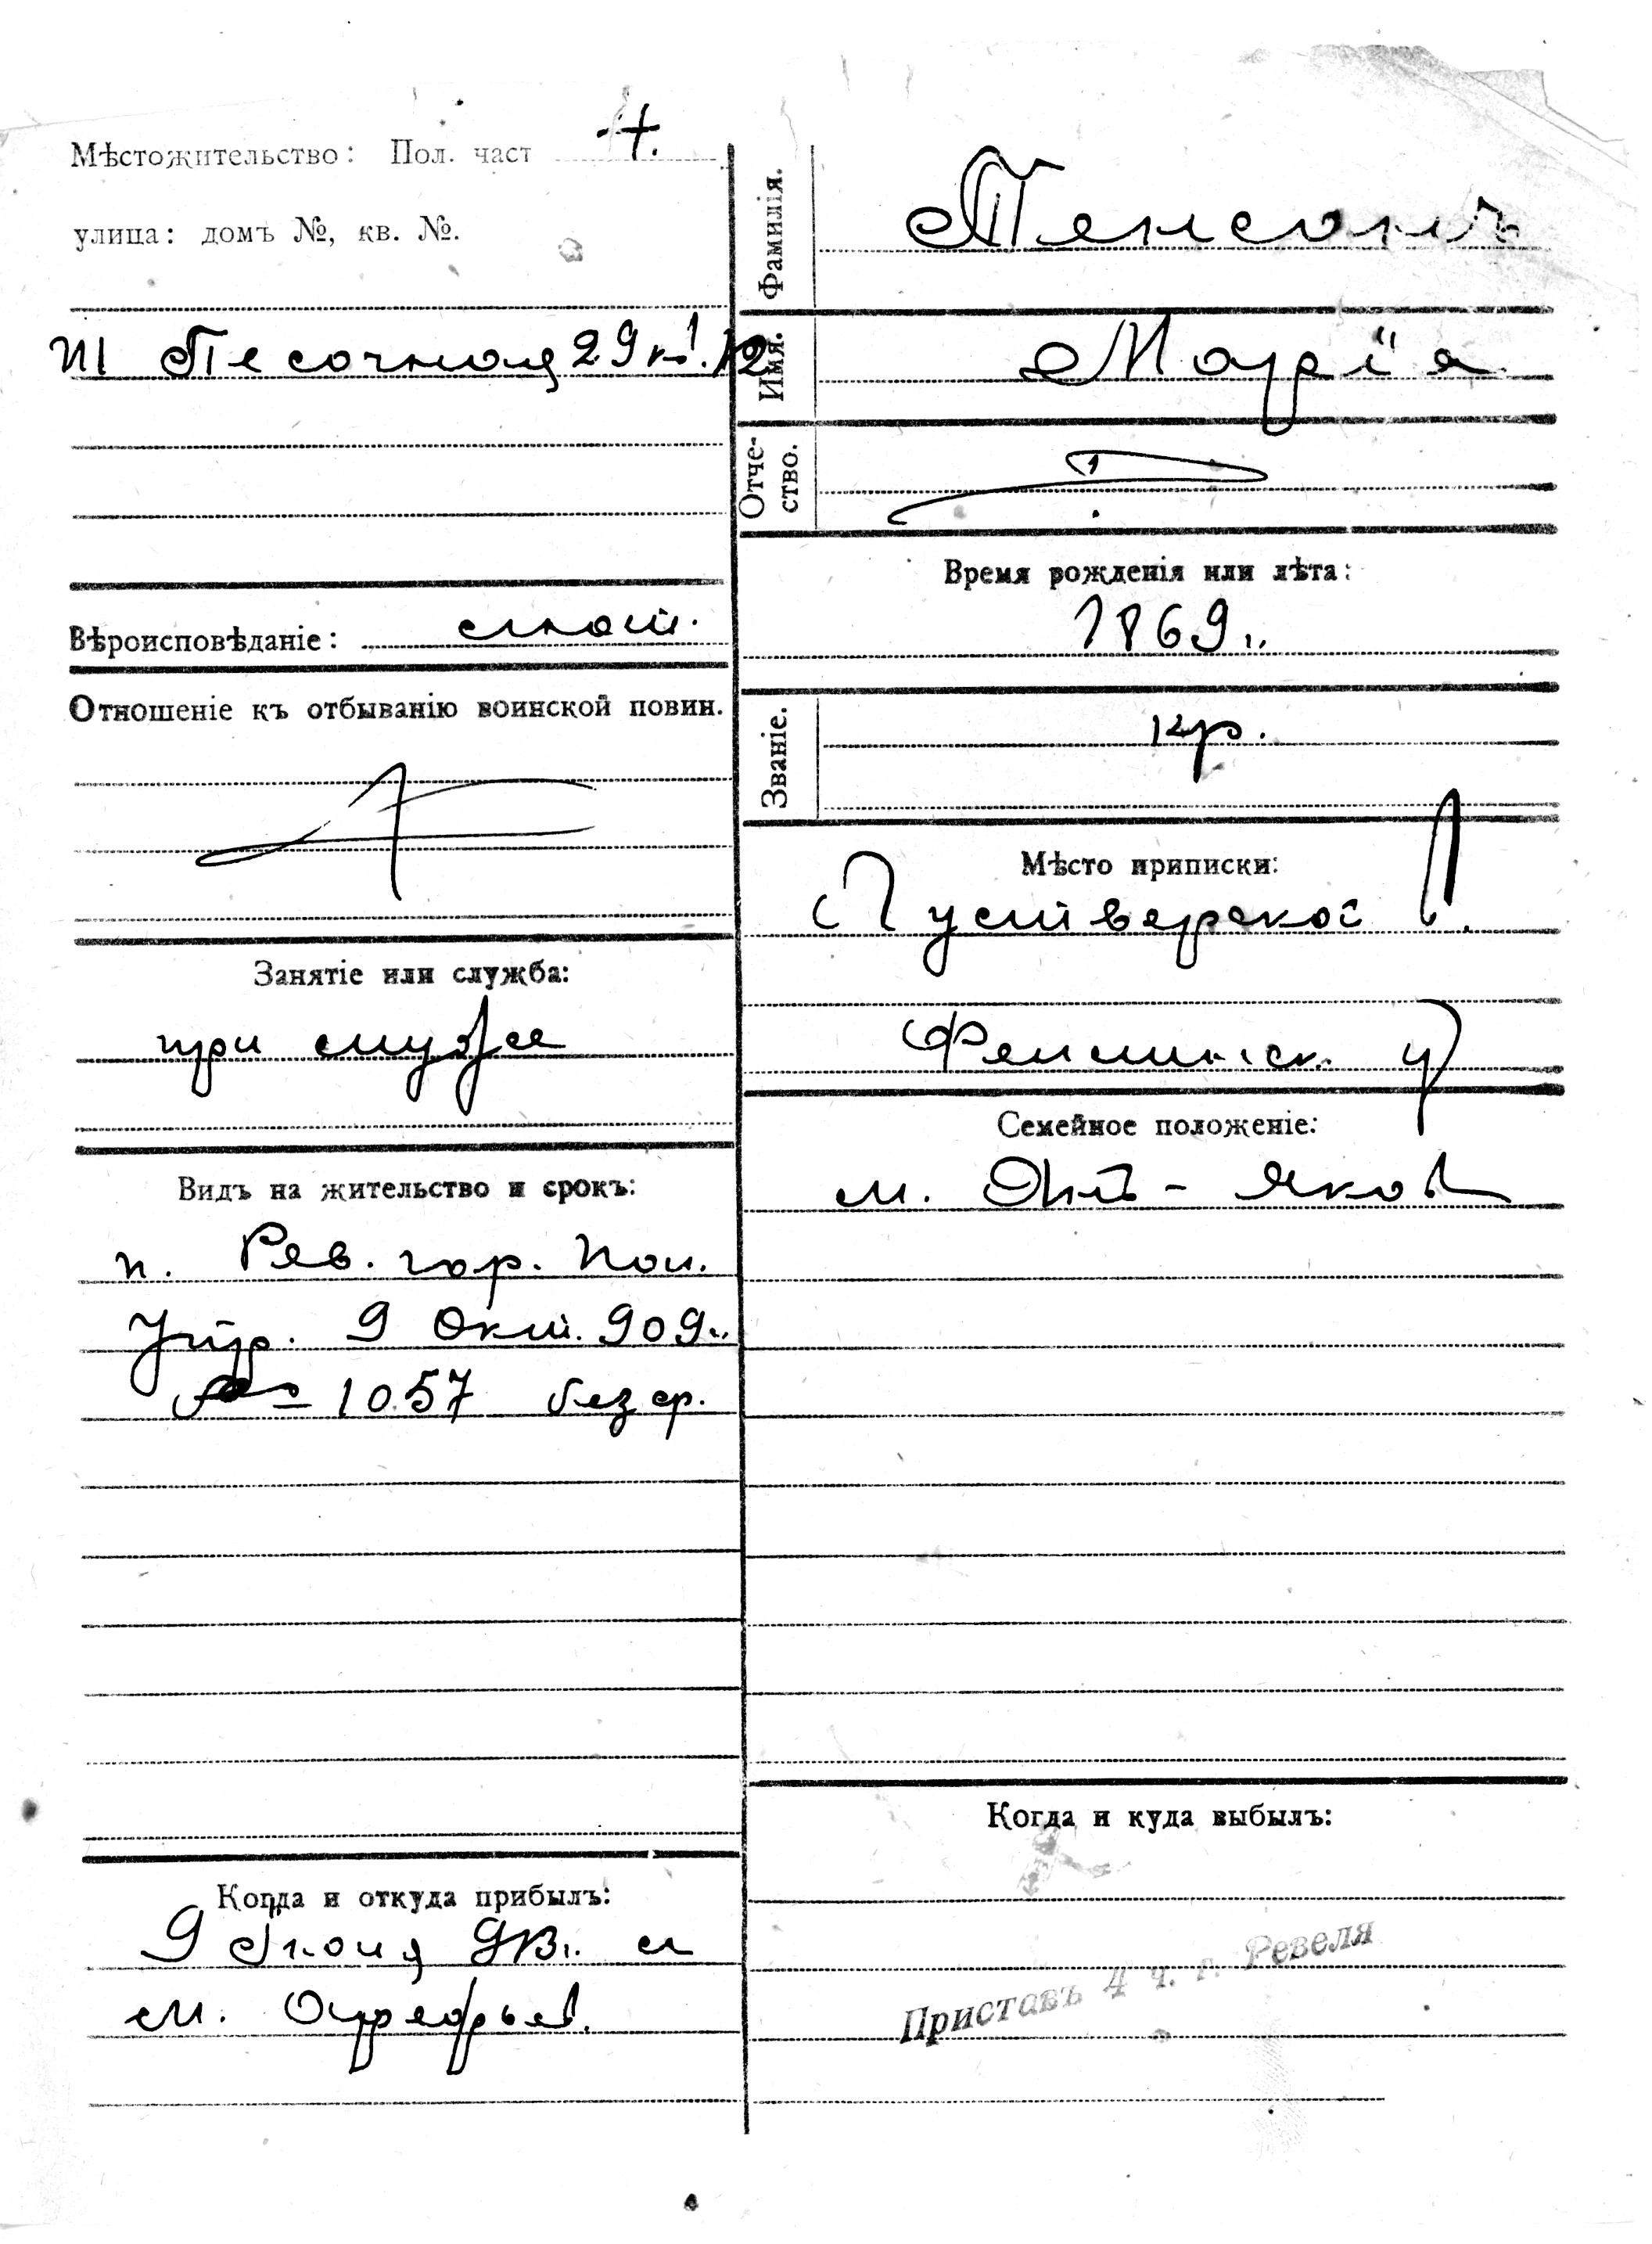 Мѣстожительство: Пол. част 4.
улица: домъ №, кв. №.
III Песочная 29 к. 12
Вѣроисповѣданіе: лют.
Отношеніе къ отбыванію воинской повин.
Занятіе или служба:
при мужѣ
Видъ на жительство и срокъ:
п. Рев. гор. Пол.
Упр. 9 Окт. 909 г.
№ 1057 безср.
Когда и откуда прибылъ:
9 Іюня 913 г. съ
Фамилія.
Имя. Марія
Отче-
ство.
Время рожденія или лѣта:
1869 г.
Званіе. кр.
Мѣсто приписки:
Феллинск. у
Семейное положеніе:
м. Яков
Когда и куда выбылъ:
Приставъ 4 ч. г. Ревеля